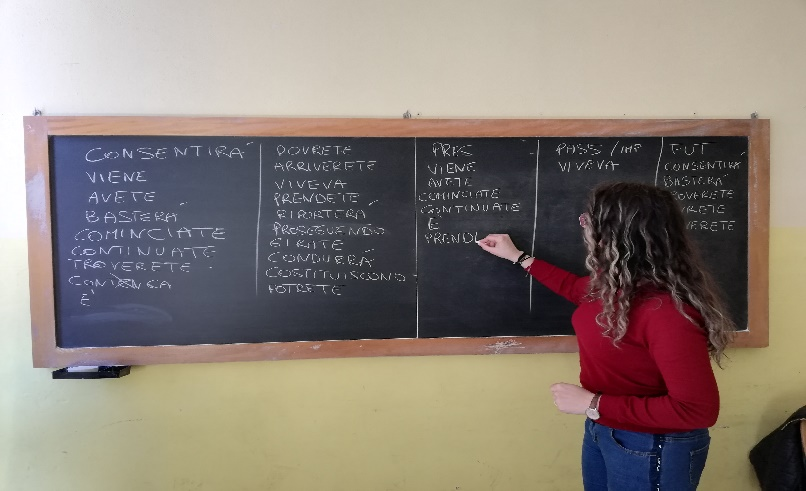 CONSENTIRÁ
VIENE
AVETE
BASTERÁ
COMINCIATE
CONTINUATE
TROVERETE
É
DOVRETE
ARRIVERETE
VIVEVA
PRENDETE
RIPORTERÁ
PROSEGUENDO
GIRATE
CONDURRÁ
COSTITUISCONO
POTRETE
PRES
VIENE
AVETE
COMINCIATE
CONTINUATE
É
PREND
PASS/IMP
VIVEVA
FUT
CONSENTIRÁ
BASTERÁ
ROVERETE
VRETE
VERETE